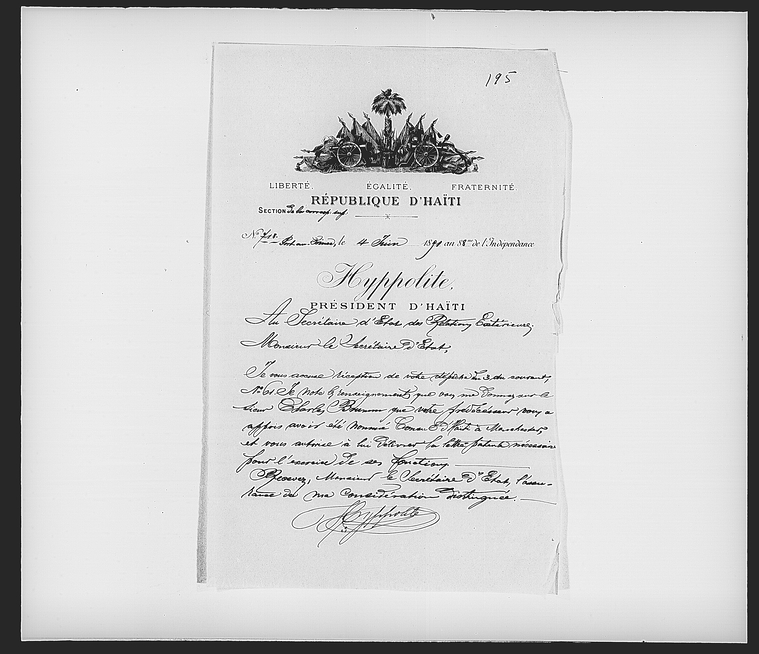 195
LIBERTÉ. ÉGALITÉ. FRATERNITÉ.
RÉPUBLIQUE D'HAÏTI
SECTION de la corresp.
No Port-au-Prince, le 4 Juin 1891 an 88me de l'Indépendance
Hyppolite,
PRÉSIDENT D'HAÏTI
Au Secrétaire d'Etat des Relations Extérieures,
Monsieur le Secrétaire d'Etat,
Je vous accuse réception de votre dépêche du 3 du courant,
No 61. Je note les renseignements que vous me donnez sur le
sieur Charles que votre prédécesseur vous a
appris avoir été nommé Consul d'Haïti à Manchester,
et vous autorise à lui délivrer la lettre patente nécessaire
pour l'exercice de ses fonctions
Recevez, Monsieur le Secrétaire d'Etat, l'assu-
rance de ma considération distinguée.
Hyppolite